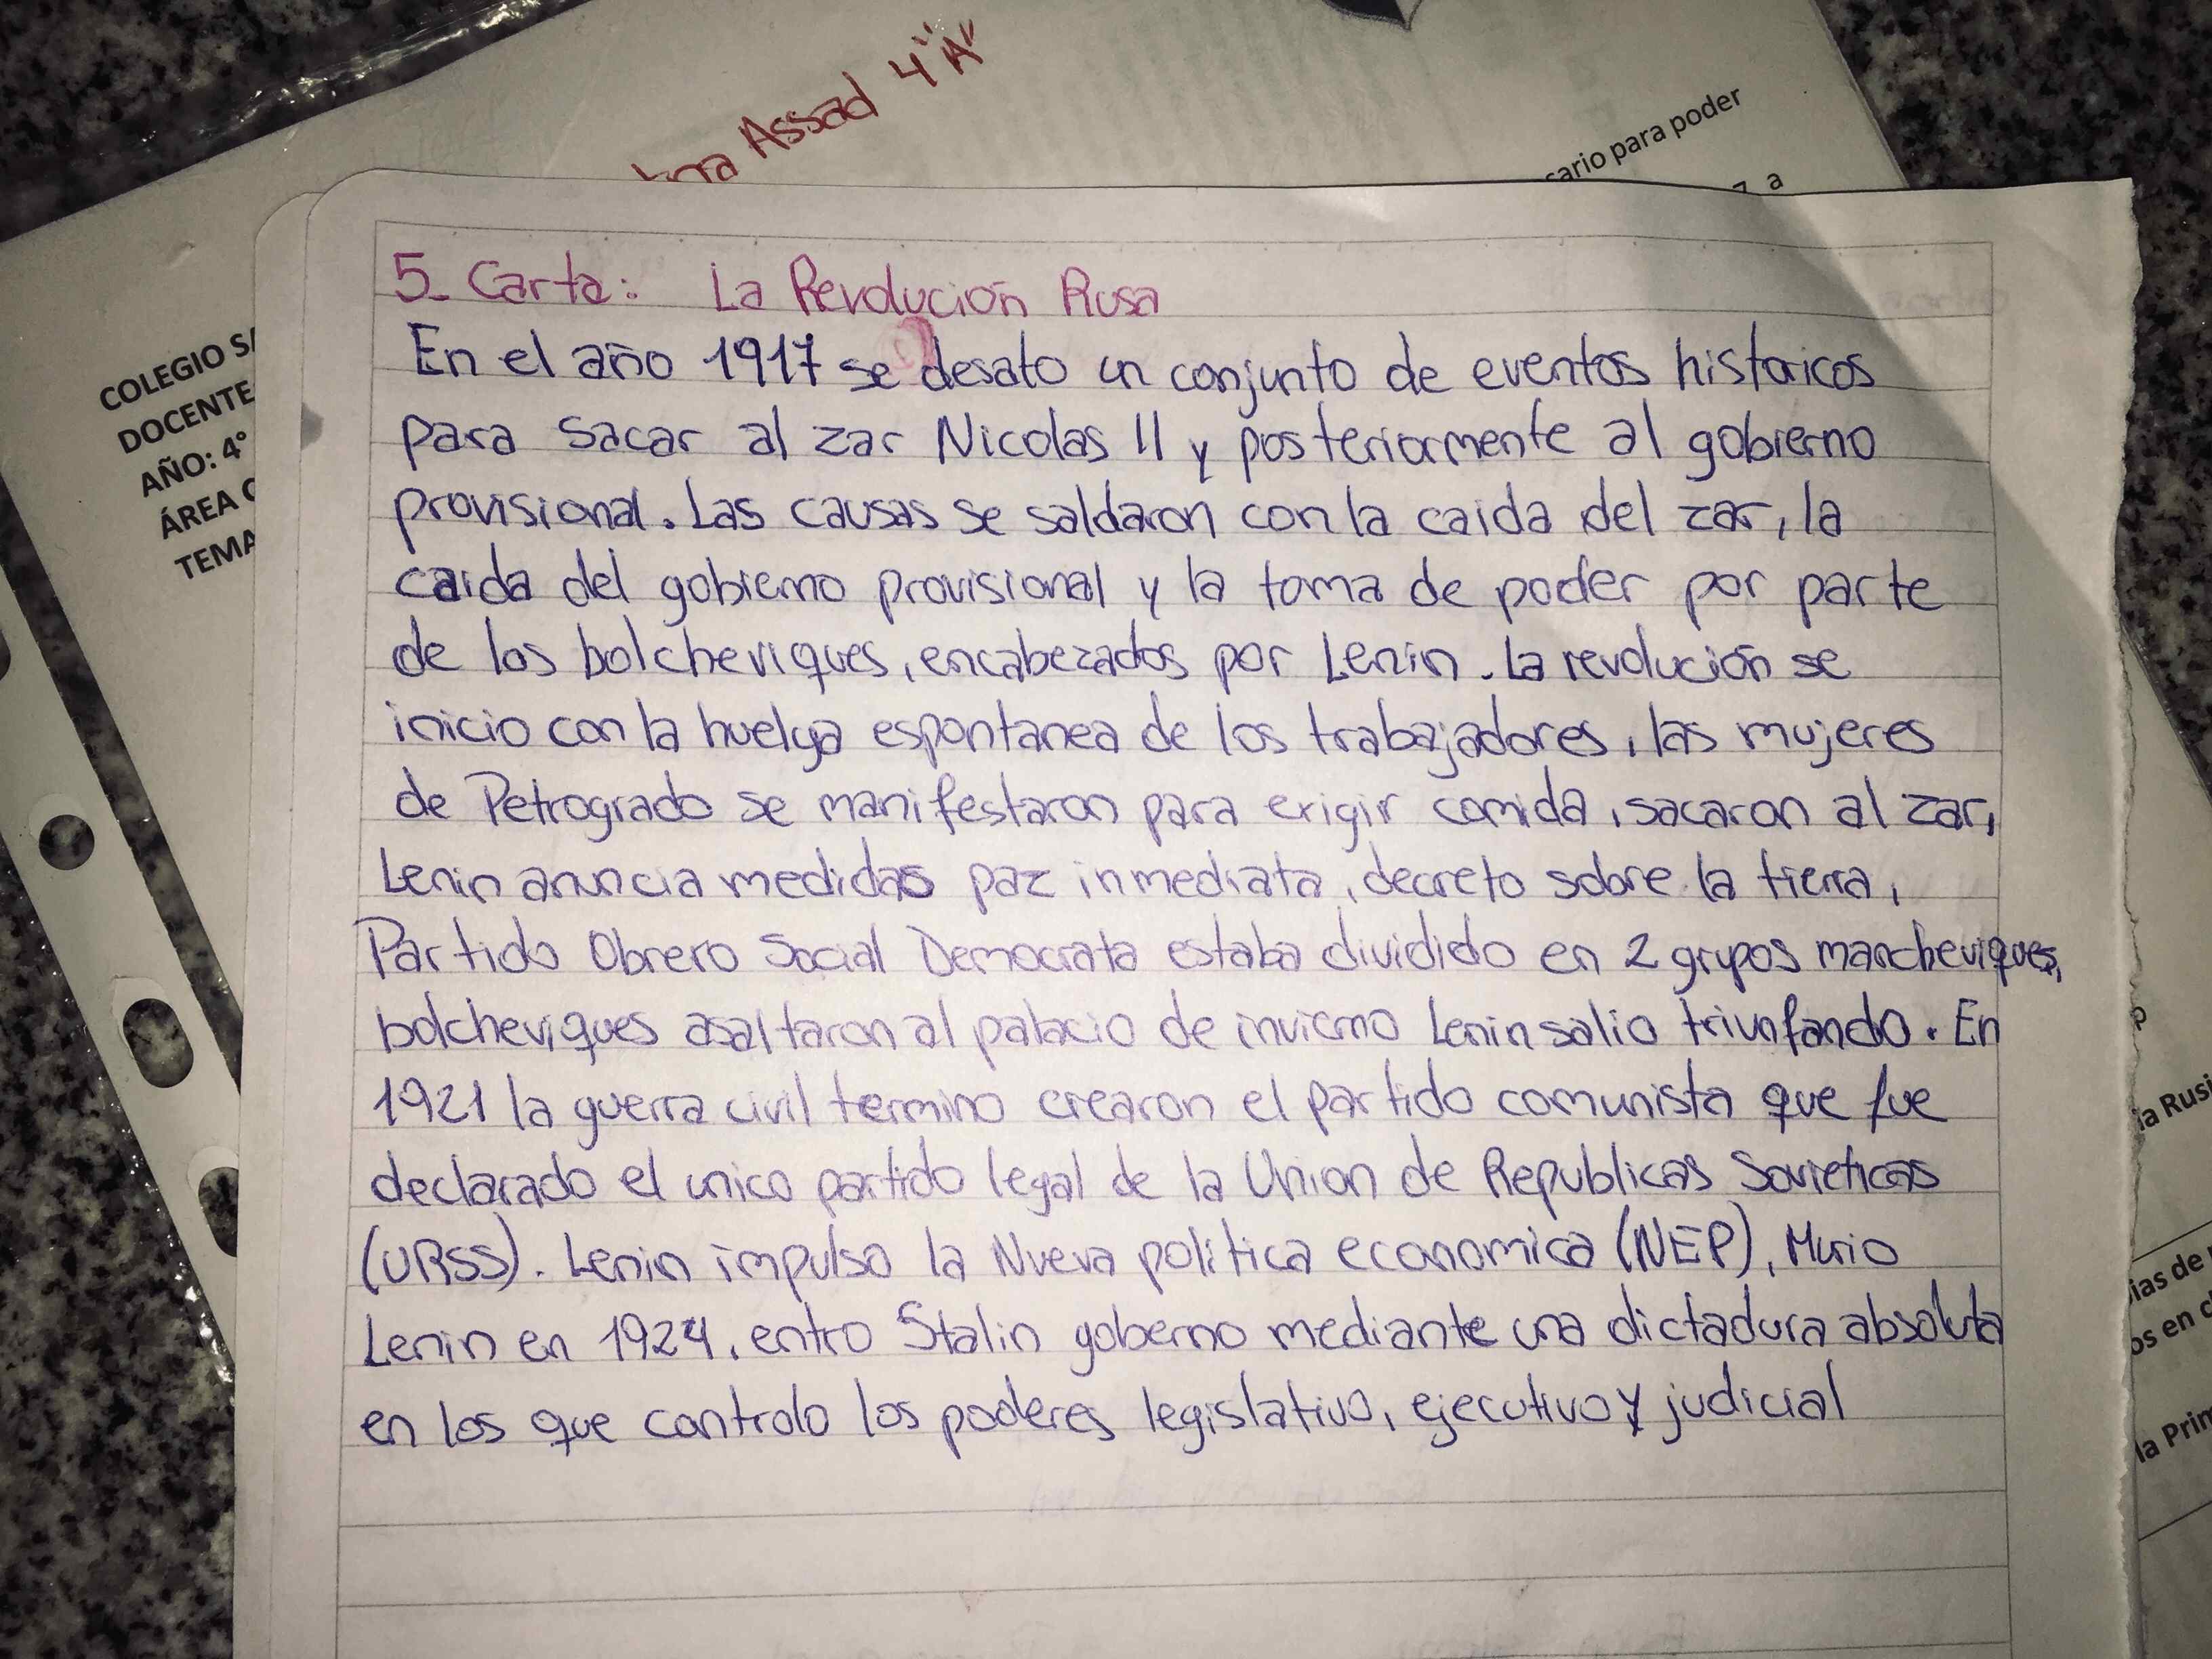 Assad 4"A"
sario para poder
a
COLEGIO
DOCENTE
AÑO: 4°
ÁREA
TEMA
5_ Carta: La Revolución Rusa
En el año 1917 se desato un conjunto de eventos historicos
para sacar al zar Nicolas II y posteriormente al gobierno
provisional. Las causas se saldaron con la caida del zar, la
caida del gobierno provisional y la toma de poder por parte
de los bolcheviques, encabezados por Lenin. La revolución se
inicio con la huelga espontanea de los trabajadores, las mujeres
de Petrogrado se manifestaron para exigir comida, sacaron al zar,
Lenin anuncia medidas paz inmediata, decreto sobre la tierra,
Partido Obrero Social Democrata estaba dividido en 2 grupos mancheviques,
bolcheviques asaltaron al palacio de invierno Lenin salio triunfando. En
1921 la guerra civil termino crearon el partido comunista que fue
declarado el unico partido legal de la Union de Republicas Sovieticas
(URSS). Lenin impulso la Nueva politica economica (NEP), Murio
Lenin en 1924, entro Stalin goberno mediante una dictadura absoluta
en los que controlo los poderes legislativo, ejecutivo y judicial
la Rusi
ias de
os en
la Prim